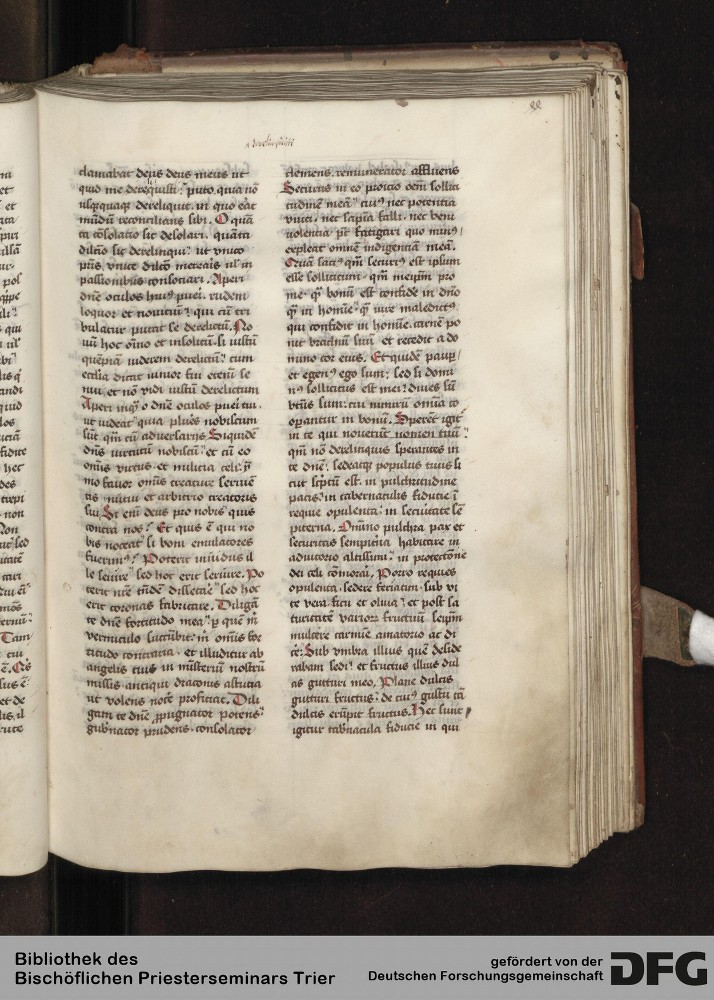 88
clamabat deus deus meus ut
quid me dereliquisti? puto quia nō
usquequaq̄ dereliquit. in quo erat
mūdum reconcilians sibi. O quā
ta cōsolatio sic desolari. quāta
dilcō sic derelinqui? ut unico
pr̄is unice dilcō merearis ul' in
passionibus consociari. Aperi
dn̄e oculos hui9 pueri. rudem
loquor et nouiciū? qui cū tri
bulatur putat se derelictū. No
uū hoc oīno et insolitū. si iustū
quēpiā uiderem derelictū? cum
ecclia dicat iunior fui etenī se
nui. et nō uidi iustū derelictum
Aperi inq̄ o dn̄e oculos pueri tui.
ut uideat quia plures nobiscum
sūt. qm̄ cū aduersariis. Siquidē
dn̄s uirtutū nobiscū? et cū eo
omīs uirtus et milicia celi.
mo fauor omīs creature seruiē
tis nutui et arbitrio creatoris
sui. Si eni deus pro nobis quis
contra nos? Et quis ē qui no
bis noceat si boni emulatores
fuerim9? Poterit inuidus il
le seuire? sed hoc erit seruire. Po
terit nr̄e tn̄dē dissecare? sed hoc
erit coronas fabricare. Diligā
te dn̄e fortitudo mea? p quē m̄
uermiculo sucūbit m̄ omīs for
titudo contraria. et illuditur ab
angelis tuis in misterium nostrū
missis antiqui draconis astucia
ut uolens nolens proficiat. Dili
gam te dn̄e ꝓpugnator potens?
gubnator prudens. consolator
clemens. remunerator affluens
Securus in eo proicio oēm sollici
tudinē meā? cui9 nec potentia
uinci. nec sapīa falli. nec beni
uolentia pt̄ fatigari quo min9
expleat omnē indigentiā meā.
Quā sati9 qm̄ securi9 est ipsum
esse sollicitum. qm̄ meipm̄ pro
me. q̄ bonū est confide in dn̄o
q̄ in homīe? q̄ iure maledict9
qui confidit in homīe. carnē po
nit brachiū suū. et recedit a do
mino cor eius. Et quidē paup9
et egen9 ego sum? sed si domi
n9 sollicitus est mei? diues sū
bt̄us sum. cui nimirū omīa co
operantur in bonū. Sperent igit'
in te qui nouerūt nomen tuū?
qm̄ nō derelinquis sperantes in
te dn̄e. sedeatq̄ populus tuus si
cut scptū est. in pulchritudine
pacis. in tabernaculis fiducie ī
requie opulenta. in securitate sē
piterna. Omīno pulchra pax et
securitas sempitn̄a habitare in
adiutorio altissimi. in protectōne
dei celi cōmorari. Porro requies
opulenta. sedere feriatum. sub ui
te uera. ficu et oliua? et post sa
turitatē variorum fructuū
mulcere carmīe amatorio ac di
ce: Sub umbra illius quē deside
rabam sedi? et fructus illius dul
cis gutturi meo. Plane dulcis
gutturi fructus? de cui9 gustu tā
dulcis erūpit fructus. Hec sunt
igitur tab̄nacula fiducie in qui
Bibliothek des
Bischöflichen Priesterseminars Trier
gefördert von der
Deutschen Forschungsgemeinschaft
DFG